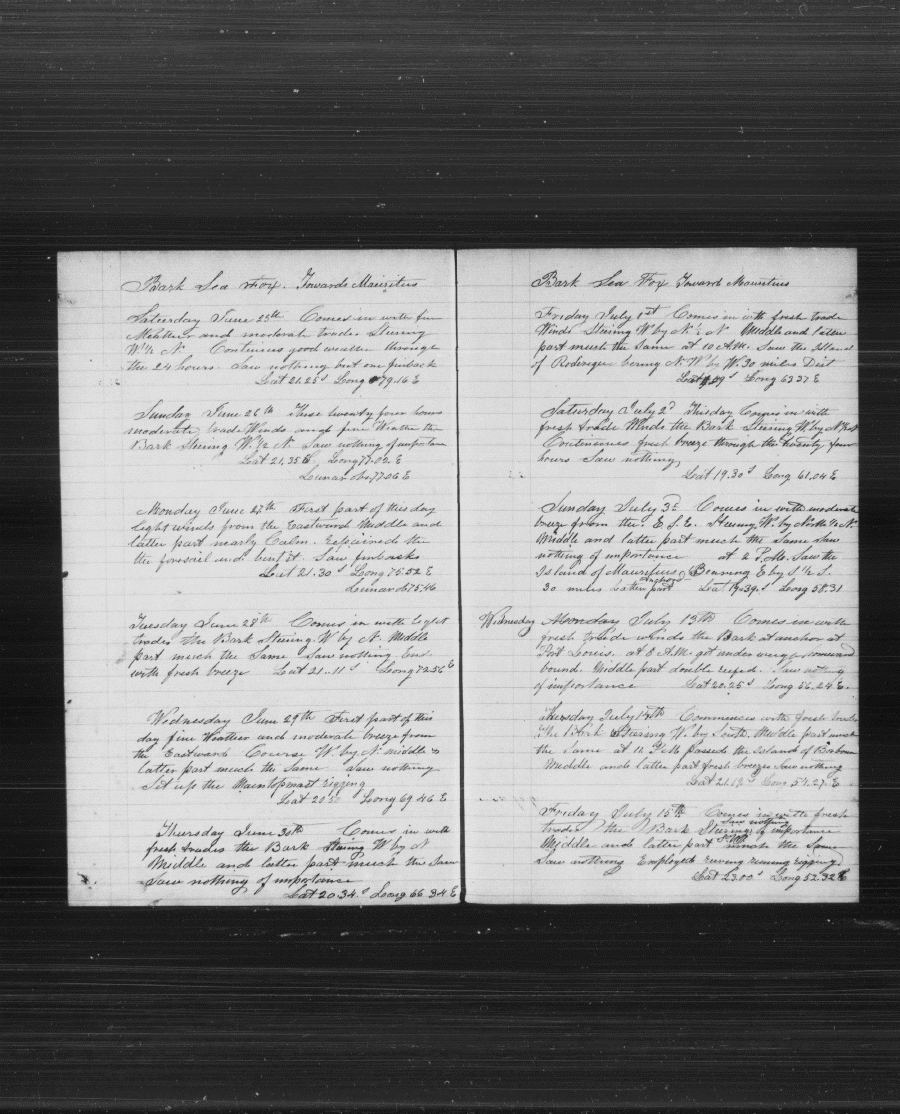 Bark Sea Fox. Towards Mauritius
Saturday June 25th Comes in with fin
Weather and moderate trades Steering
W 1/2 N. Continues good weather through
the 24 hours. Saw nothing but one finback
Lat 21.25 S Long 79.16 E
Sunday June 26th These twenty four hours
moderate trade Winds and fine Weather the
Bark Steering W 1/2 N. Saw nothing of importance
Lat 21.35 S Long 77.02. E
Lunar obs 77.06 E
Monday June 27th First part of this day
light winds from the Eastward Middle and
latter part nearly Calm. Repaired the
the foresail and bent it. Saw finbacks
Lat 21.30 S Long 75.52 E
Lunar ob 75.46
Tuesday June 28th Comes in with light
trades the Bark Steering W by N. Middle
part much the Same Saw nothing End
with fresh breeze Lat 21..11 S Long 72.56 E
Wednesday June 29th First part of this
day fine Weather and moderate breeze from
the Eastward Course W. by N. middle &
latter part much the Same. Saw nothing
Set up the Maintopmast rigging
Lat 20 Long 69 46 E
Thursday June 30th Comes in with
fresh trades the Bark Steering W by N
Middle and latter part much the Same
Saw nothing of importance
Lat 20.34. S Long 66 34 E
Bark Sea Fox Toward Mauritius
Friday July 1st Comes in with fresh trade
Winds Steering W by N 1/2 N Middle and latter
part much the Same at 10 A.M. Saw the Island
of Rodrigue bering N. W by W. 30 miles Dist
Lat 19 S Long 63 37 E
Saturday July 2d This day Comes in with
fresh trade Winds the Bark Steering W. by N 1/2 N
Continues fresh breeze through the twenty four
hours Saw nothing
Lat 19.30 S Long 61.04 E
Sunday July 3d Comes in with moderate
breeze from the E S.E. Steering W. by North 1/2 N.
Middle and latter part much the Same Saw
nothing of importance at 2 P.M. Saw the
Island of Maurefius Bearing E by S 1/2 S.
30 miles Latter part Anchored Lat 19.39. S Long 58.31
Wednesday Monday July 13th Comes in with
fresh trade winds the Bark at anchor at
Port Louis. at 8 A.M. got under weigh homeward
bound. Middle part double reefed. Saw nothing
of importance Lat 20.25 S Long 56.24 E.
Thursday July 14th Commences with fresh trades
The Bark Steering W. by South. Middle part much
the Same at 11 P.M. passed the Island of Borbon
Middle and latter part fresh breeze Saw nothing
Lat 21.13 S Long 54.27. E
Friday July 15th Comes in with fresh
trades the Bark Steering S W by W Saw nothing of importance
Middle and latter part much the Same
Saw nothing Employed reeving running rigging
Lat 23.00 S Long 52.32 E